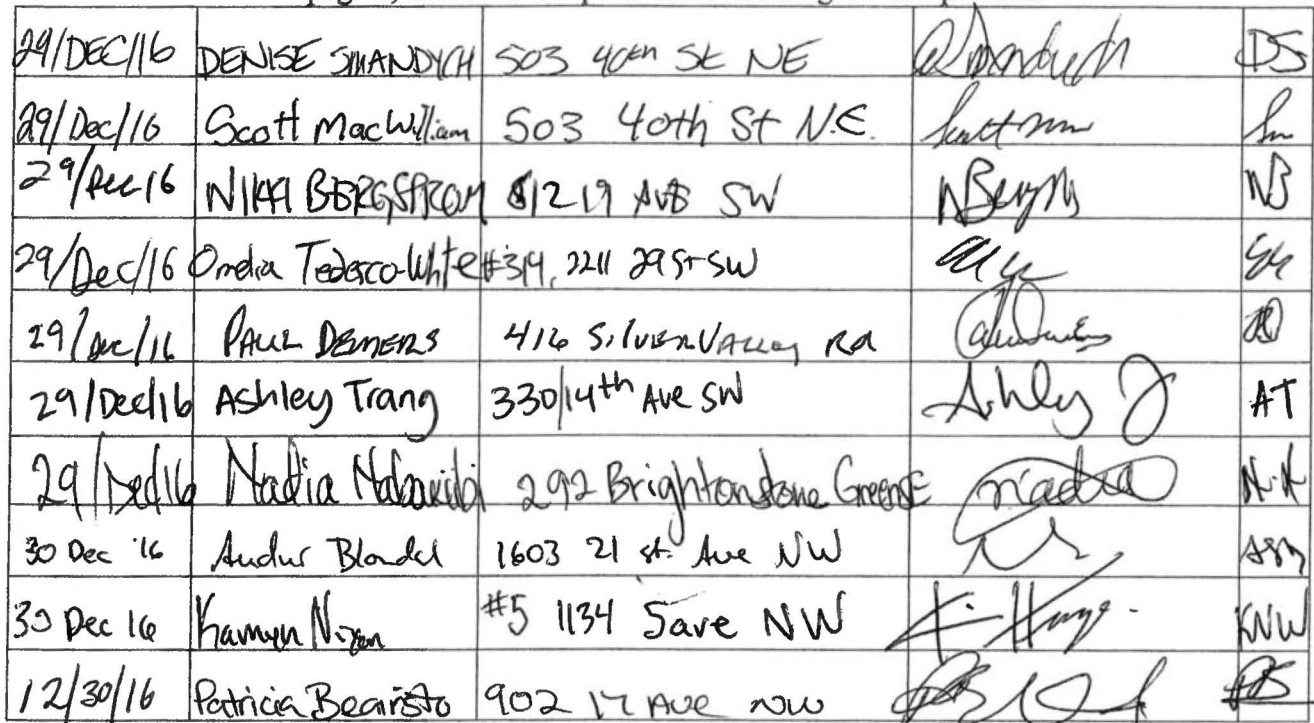 29/DEC/16 DENISE SMANDYCH 503 40th St NE DS
29/Dec/16 Scott MacWilliam 503 40th St N.E. Sm
29/Dec 16 NIKKI BERGSTROM 1219 AVE SW NB
29/Dec/16 Tedesco-White #314, 2211 29 St SW
29/Dec/16 PAUL DEMERS 416 Silver Valley Rd
29/Dec/16 Ashley Trang 330 14th Ave SW Ashley AT
29/Dec/16 Nadia 292 Brightonstone Green SE nadia N.N
30 Dec '16 Audur Blondal 1603 21 st Ave NW
30 Dec 16 Kamyn #5 1134 5 ave NW KNW
12/30/16 Patricia Bearisto 902 17 Ave NW